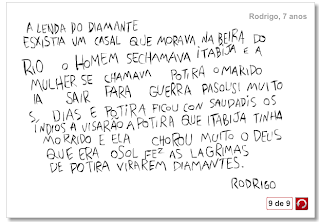 Rodrigo, 7 anos
A LENDA DO DIAMANTE
ESXISTIA UM CASAL QUE MORAVA NA BEIRA DO
RIO O HOMEM SECHAMAVA ITABIJA E A
MULHER SE CHAMAVA POTIRA O MARIDO
IA SAIR PARA GUERRA PASOUSI MUITO
S, DIAS E POTIRA FICOU CON SAUDADIS OS
ÍNDIOS A VISARÃO A POTIRA QUE ITABIJA TINHA
MORRIDO E ELA CHOROU MUITO O DEUS
QUE ERA OSOL FEZ AS LAGRIMAS
DE POTIRA VIRAREM DIAMANTES.
RODRIGO
9 de 9